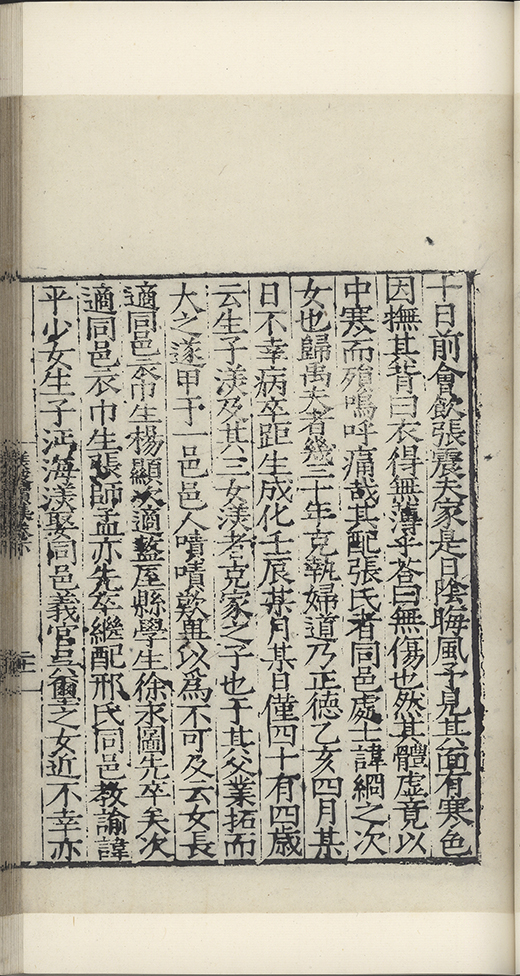 十日前會飲張震夫家是日陰晦風予見其面有寒色
因撫其背曰衣得無薄乎荅曰無傷也然其體虛竟以
中寒而殞嗚呼痛哉其配張氏者同邑處士諱綱之次
女也歸禹夫者幾三十年克執婦道乃正德乙亥四月某
日不幸病卒距生成化壬辰某月某日僅四十有四歲
云生子渼及其三女渼者克家之子也于其父業拓而
大之遂甲于一邑邑人嘖嘖歎異以爲不可及云女長
適同邑衣巾生楊顯次適盩厔縣學生徐永圖先卒矣次
適同邑衣巾生張師孟亦先卒繼配邢氏同邑教諭諱
平少女生子沔海渼娶同邑義官吳璽之女近不幸亦